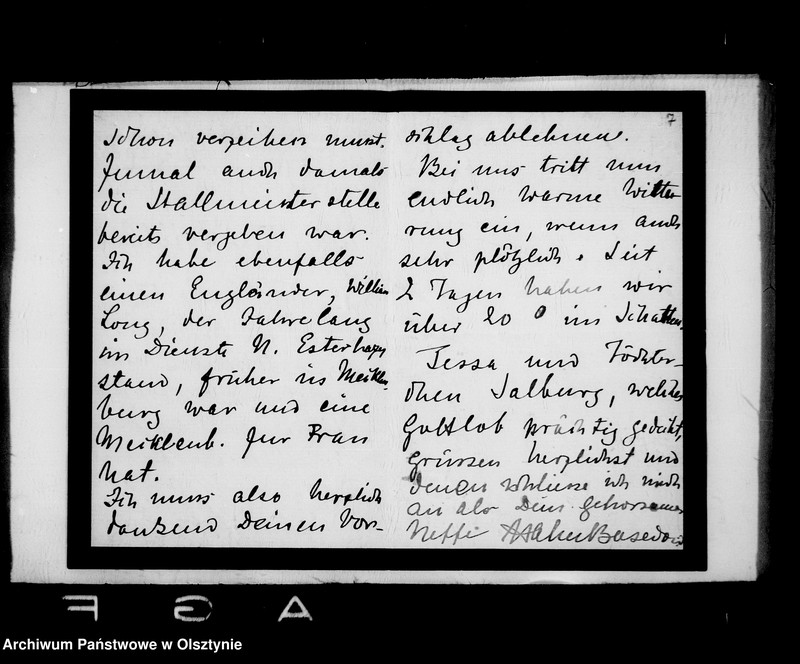 schon verzeihen musst.
zumal auch damals
die Stallmeister stelle
bereits vergeben war.
Ich habe ebenfalls
einen Engländer, William
Long, der Jahrelang
im Dienste N. Esterhazy
stand, früher in Meklen
burg war und eine
Mecklenb. zur Frau
hat.
Ich muss also herzlich
dankend Deinen Vor-
7
schlag ablehnen.
Bei uns tritt nun
endlich warme Witte
rung ein, wenn auch
sehr plötzlich. Seit
2 Tagen haben wir
über 20 ° im Schatten.
Tessa und Töchter-
chen Salburg, welches
Gottlob prächtig gedeiht,
grüssen herzlichst und
denen schliesse ich mich
an als Dein gehorsamer
Neffe Hahn Basedow
A G F
Archiwum Państwowe w Olsztynie